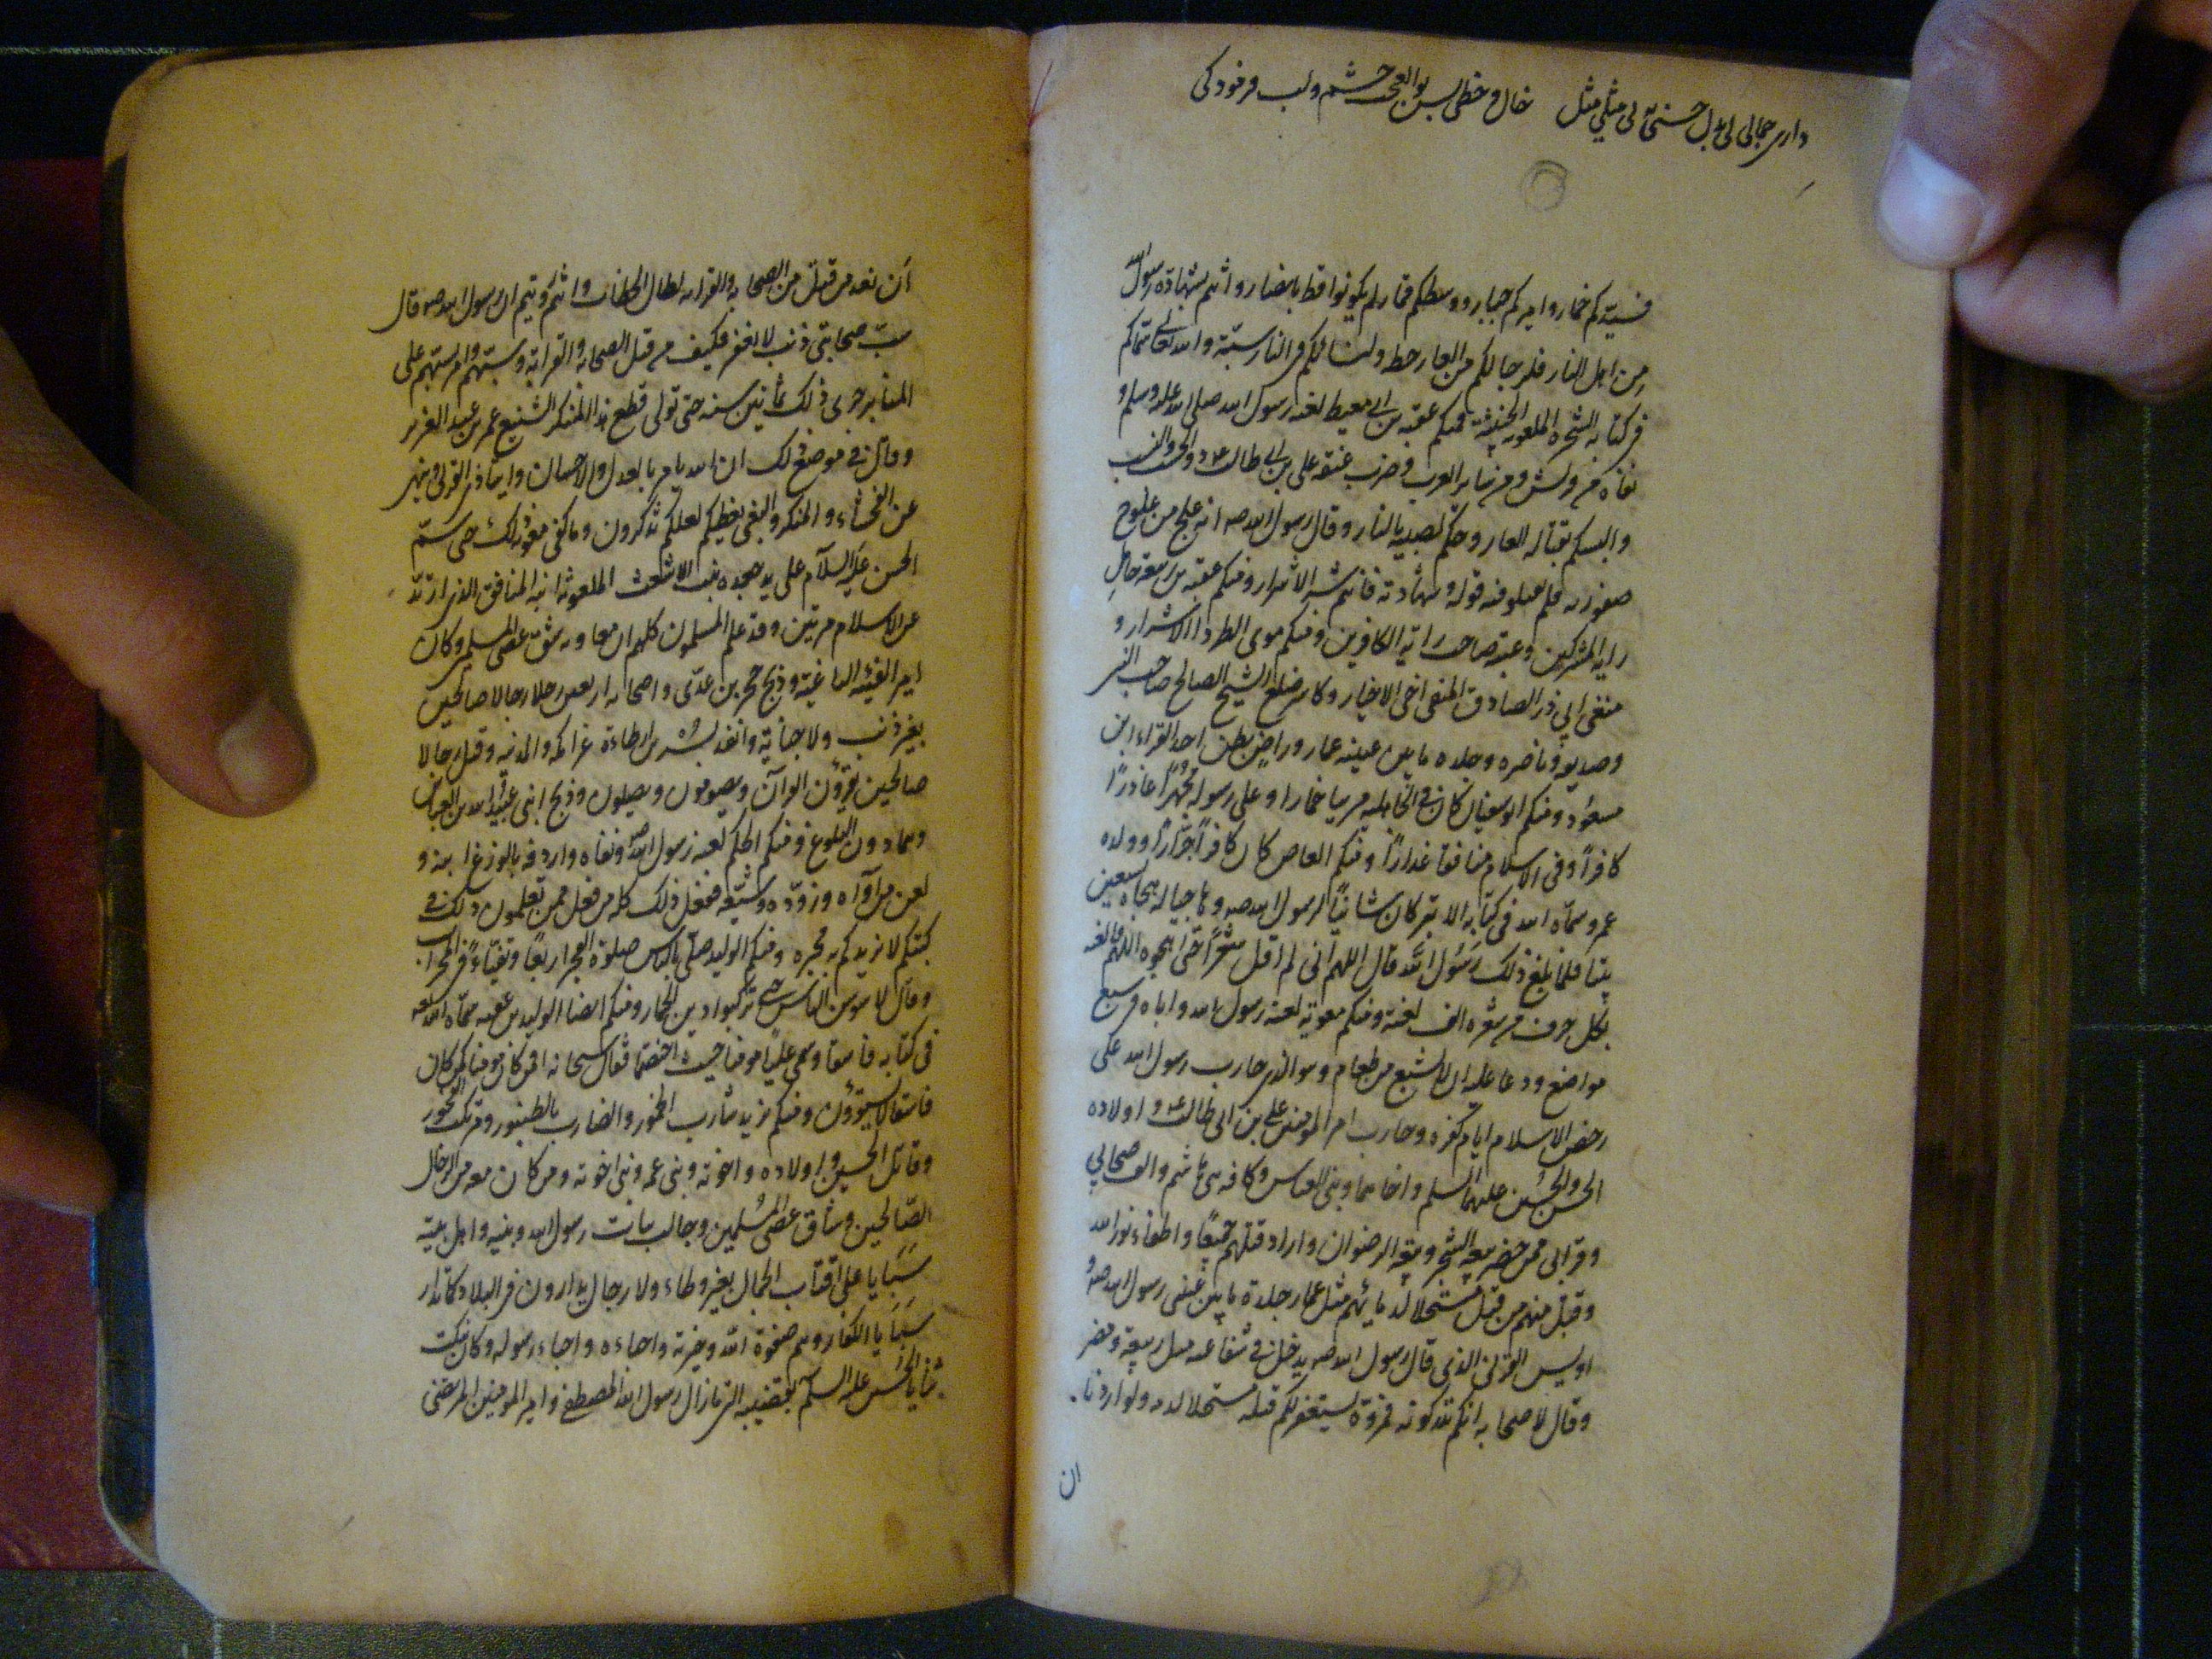 داری جمالی بی بدل حسنی بی مثلی مثل خال و خطی بس بوالعجب چشم و لب
خمار وامیرکم جبار ووسطکم قمار لم یکونوا قط بابصار وانتم بشهادة رسول الله
من اهل النار فلرجالکم من العار حظ ولنسائکم فی النار والله تعالی سماکم
فی کتابه الشجرة الملعونة الخبیثة فمنکم عقبه بن ابی معیط لعنه رسول الله صلی الله علیه وسلم و
نفاه من قریش ومن سایر العرب وضرب عنقه علی بن ابی طالب
والبسکم بقتله العار وحکم لصبیة بالنار وقال رسول الله صه انه علج من علوج
صفوریه فلم قوله وشهادته فانتم شر الاشرار ومنکم عتبه بن ربیعه حامل
رایة المشرکین وعتبه صاحب رایة الکافرین ومنکم موی الطرداء الاشرار و
منفی ابی ذر الصادق المنفی اخی الاخیار وکاسر ضلع الشیخ الصالح صاحب النبی
وصدیقه وناصره وجلده ما بین عینیه عمار وراض بطن احد القراء ابن
مسعود ومنکم ابو سفیان کان فی الجاهلیه خمارا وعلی رسوله غادرًا
کافرًا وفی الاسلام منافقا غدارًا ومنکم العاص کان کافرًا جزارًا وولده
عمرو سماه الله فی کتابه الابتر کان شانئًا لرسول الله صه وهاجیا له هجاه بسبعین
بیتا فلما بلغ ذلک رسول الله قال اللهم انی لم اقل شعرًا حتی اهجوه اللهم فالعنه
بکل حرف من شعره الف لعنة ومنکم معویة لعنه رسول الله واباه فی سبع
مواضع ودعا علیه ان لا یشبع من طعام وهو الذی حارب رسول الله علی
رفض الاسلام ایام کفره وحارب امیر المومنین علی بن ابی طالب واولاده
الحسن والحسین علیهما السلم واخاهما وبنی العباس وکافه بنی هاشم والف صحابی
وقرابی ممن حضر بیعة الشجر وبیعة الرضوان واراد قتلهم جمیعًا واطفاء نور الله
وقتل منهم من قتل مستحلا لدمائهم مثل عمار جلدة ما بین عینی رسول الله صه و
اویس القرنی الذی قال رسول الله صه یدخل فی شفاعته مثل ربیعة ومضر
وقال لاصحابه انکم تدرکونه فمروه لیستغفر لکم قتله مستحلا لدمه ولو اردنا
ان
ان نعد من قتل من الصحابه والقرابه لطال الخطاب وانتم رویتم ان رسول الله صه قال
سب صحابتی ذنب لا یغفر فکیف من قتل الصحابه والقرابة وسبتهم وامر بسبهم علی
المنابر جری ذلک ثمانین سنه حتی تولی قطع هذا المنکر الشنیع عمر بن عبد العزیز
وقال فی موضع ذلک ان الله یامر بالعدل والاحسان وایتاء ذی القربی وینهی
عن الفحشاء والمنکر والبغی یعظکم لعلکم تذکرون وما کفی معویة ذلک حتی سم
الحسن علیه السلام علی ید جعده بنت الاشعث الملعونة ابنة المنافق الذی ارتد
عن الاسلام مرتین وقد علم المسلمون کلهم ان معاویه شق عصی المسلمین وکان
امیر الفئه الباغیة وذبح حجر بن عدی واصحابه اربعین رجلا رجالا صالحین
بغیر ذنب ولا جنایة وانفذ بسر بن ارطاءة غزا مکه والمدینه وقتل رجالا
صالحین یقرؤن القرآن ویصومون ویصلون وذبح ابنی عبید الله بن العباس
وهما دون البلوغ ومنکم الحکم لعنه رسول الله صه ونفاه واردفه بالوزغ ابنه و
لعن من آواه وزوده وشیعه ففعل ذلک کله من فعل ممن تعلمون وذلک فی
کتبکم لا نزیدکم به خبره ومنکم الولید صلی بالناس صلوة الفجر اربعًا وتقیأ فی المحراب
وقال ومنکم ایضا الولید بن عقبه سماه الله
فی کتابه فاسقا وسمی علیًا مومنا حیث اختصما فقال سبحانه افمن کان مومنا کمن کان
فاسقا لا یستوون ومنکم یزید شارب الخمور والضارب بالطنبور ومرتکب الفجور
وقاتل الحسین واولاده واخوته وبنی عمه وبنی اخوته ومن کان معه من الرجال
الصالحین وشاق عصی المسلمین وجالب بنات رسول الله وبنیه واهل بیته
سبایا علی اقتاب الجمال بغیر وطاء ولا رجال یدارون فی البلاد کما تدار
سبایا الکفار وهم صفوة الله وخیرته واحباءه واحباء رسوله وکان ینکت
ثنایا الحسین علیه السلم بقضیبه التی ما زال رسول الله المصطفی وامیر المومنین المرتضی